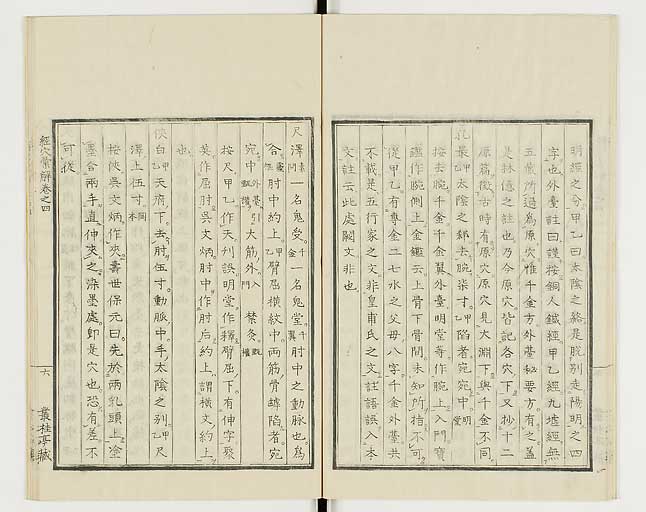 明經之分甲乙曰太陰之絡是脫別走陽明之四
字也外臺註曰謹按銅人鍼經甲乙經九墟經無
五藏所過為原穴惟千金方外臺秘要方有之蓋
是林億之註也乃今原穴皆記各穴下又抄十二
原篇微古時有原穴原穴見大淵下與千金不同
孔最甲乙太陰之郄去腕柒寸甲乙陷者宛宛中明堂
按去腕千金千金翼外臺明堂等作腕上入門寶
鑑作腕側上金鑑云上骨下骨間未知所指不可
從甲乙有專金二七水之父母八字千金外臺共
不載是五行家之文非皇甫氏之文註語誤入本
文註云此處闕文非也
尺澤素一名鬼受千金一名鬼堂千翼肘中之動脉也為
合靈樞肘中約上甲乙臂屈橫紋中兩筋骨罅陷者宛
宛中外臺甄權引大筋外入門禁灸甄權
按尺甲乙作天刋誤明堂作釋臂屈下有伸字聚
英作屈肘吳文炳肘中作肘后約上謂橫文約上
也
俠白甲乙天府下去肘伍寸動脈中手太陰之別甲乙尺
澤上伍寸同本
按俠吳文炳作夾壽世保元曰先於兩乳頭上塗
墨合兩手直伸夾之染墨處即是穴也恐有差不
可從
經穴彙解卷之四
六
叢桂亭藏